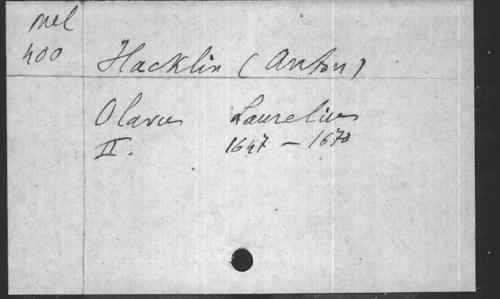 Mel
400
Hacklin (Anton)
Olavus Laurelius
II. 1647 - 1670